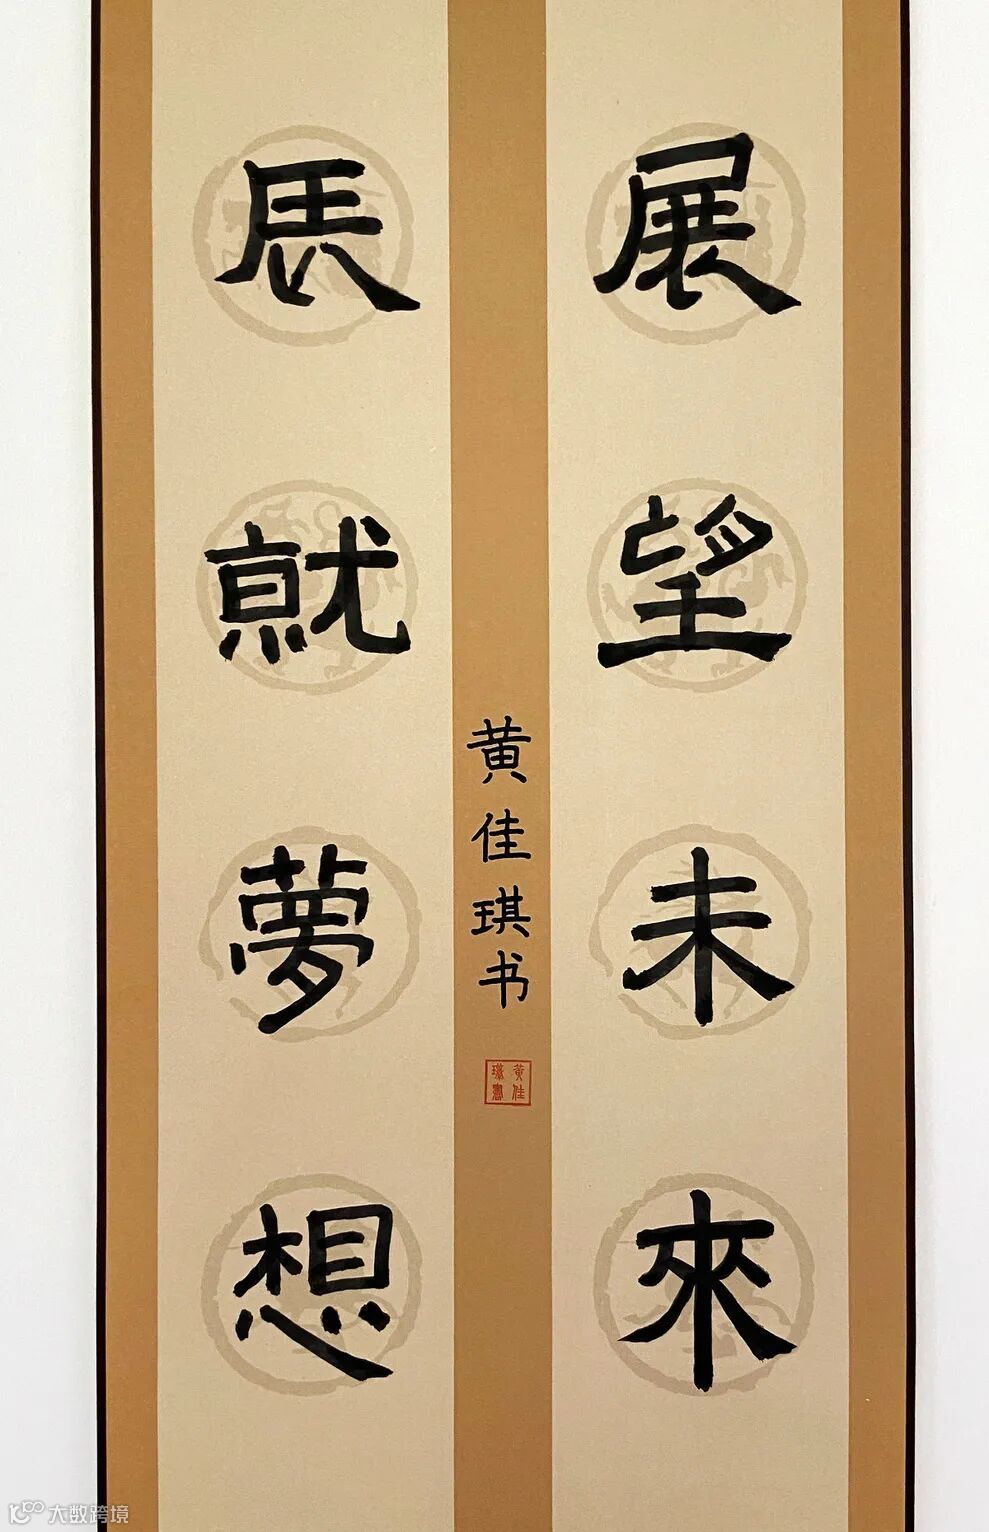 展望未來
辰就夢想
黄佳琪书
黄佳
琪書
大数跨境